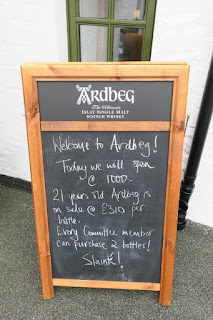 Ardbeg
The Ultimate
Islay Single Malt
Scotch Whisky
Welcome to Ardbeg!
Today we will open
@ 1000.
21 years old Ardbeg is
on sale @ £310 per
bottle.
Every Committee member
can purchase 2 bottles!
Slainte!